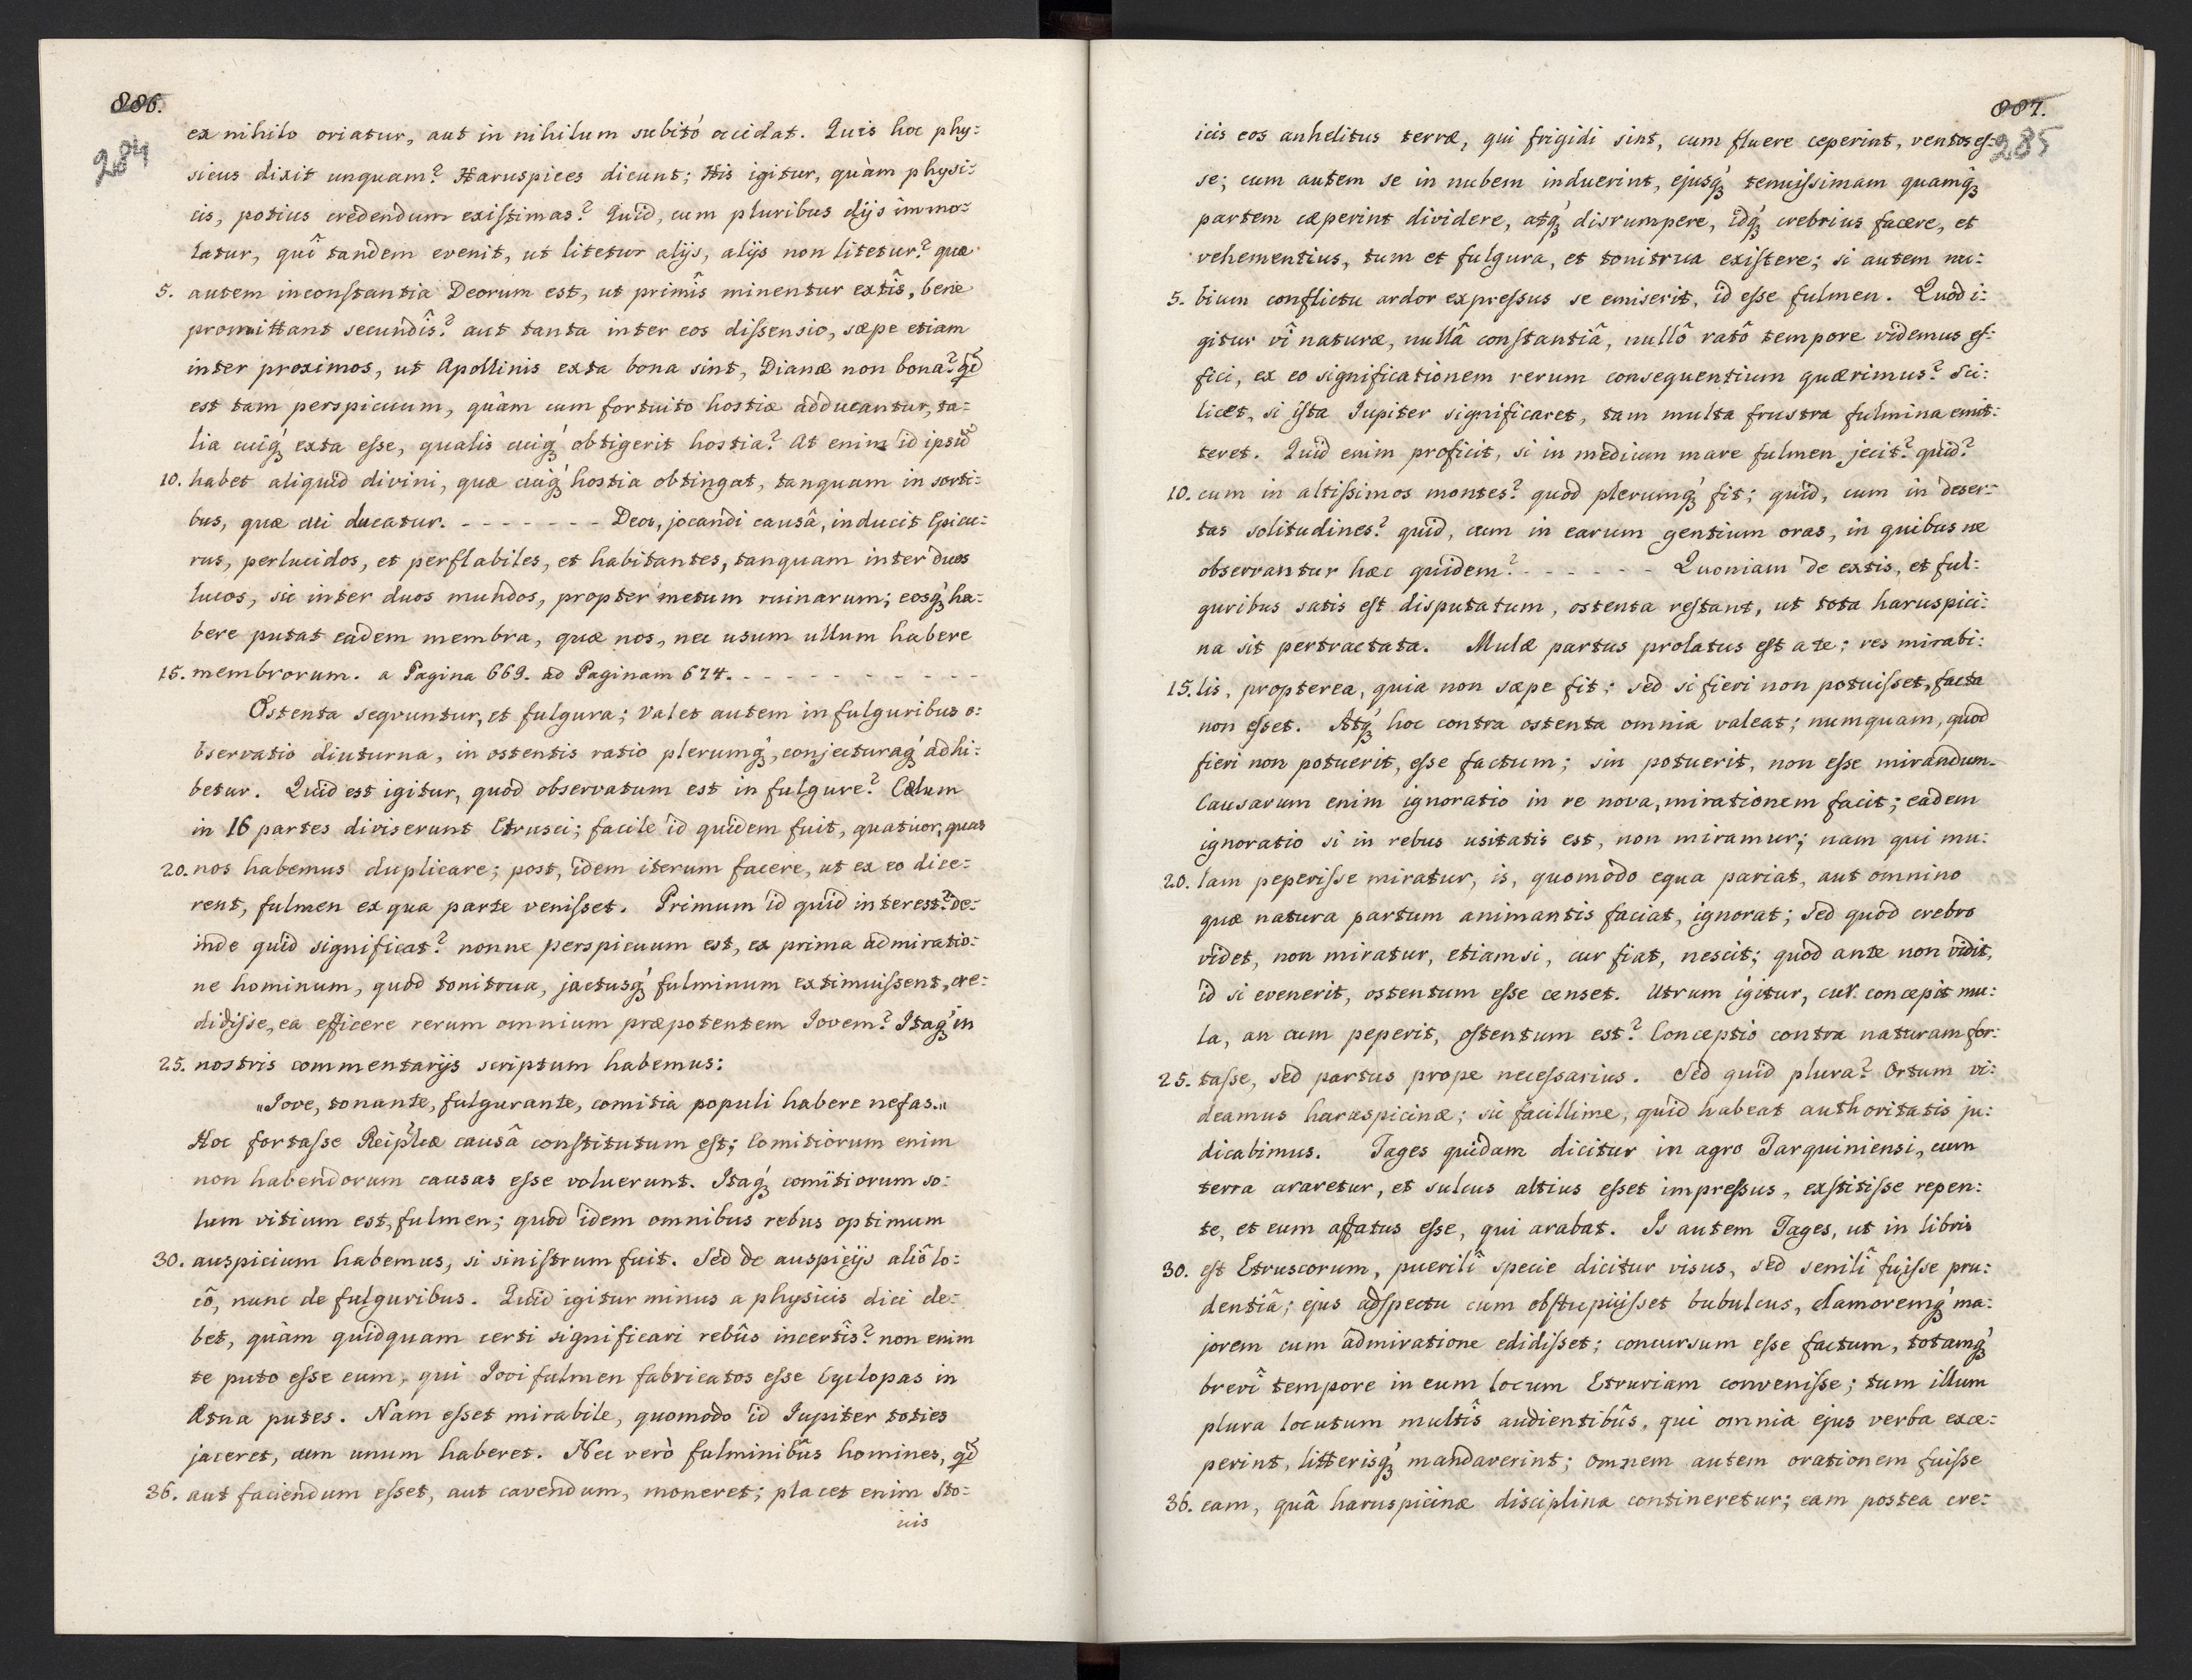 886.
284
ex nihilo oriatur, aut in nihilum subitò occidat. Quis hoc phy:
sicus dixit unquam? Haruspices dicunt; His igitur, quàm physi:
cis, potius credendum existimas? Quid, cum pluribus dijs immo:
latur, quî tandem evenit, ut litetur alijs, alijs non litetur? quæ
5. autem inconstantia Deorum est, ut primîs minentur extîs, bene
promittant secundîs? aut tanta inter eos dissensio, sæpe etiam
inter proximos, ut Apollinis exta bona sint, Dianæ non bona? qd
est tam perspicuum, quàm cum fortuito hostiæ adducantur, ta:
lia cuiq́ exta esse, qualis cuiq́ obtigerit hostia? At enim id ipsũ
10. habet aliquid divini, quæ cuiq́ hostia obtingat, tanquam in sorti:
bus, quæ cui ducatur. - - - - - - - Deos, jocandi causâ, inducit Epicu:
rus, perlucidos, et perflabiles, et habitantes, tanquam inter duos
lucos, sic inter duos mundos, propter metum ruinarum; eosq́ ha:
bere putat eadem membra, quæ nos, nec usum ullum habere
15. membrorum. a Pagina 669. ad Paginam 674. - - - - - - - - - -
Ostenta sequuntur, et fulgura; Valet autem in fulguribus o:
bservatio diuturna, in ostentis ratio plerumq́, conjecturaq́ adhi:
betur. Quid est igitur, quod observatum est in fulgure? Cælum
in 16 partes diviserunt Etrusci; facile id quidem fuit, quatuor, quas
20. nos habemus duplicare; post, idem iterum facere, ut ex eo dice:
rent, fulmen ex qua parte venisset. Primum id quid interest? de:
inde quid significat? nonne perspicuum est, ex prima admiratio:
ne hominum, quòd tonitrua, jactusq́ fulminum extimuissent, cre:
didisse, ea efficere rerum omnium præpotentem Jovem? Itaq́ in
25. nostris commentarijs scriptum habemus:
„Jove, tonante, fulgurante, comitia populi habere nefas.„
Hoc fortasse Reipłcæ causâ constitutum est; Comitiorum enim
non habendorum causas esse voluerunt. Itaq́ comitiorum so:
lum vitium est, fulmen; quod idem omnibus rebus optimum
30. auspicium habemus, si sinistrum fuit. Sed de auspicijs aliô lo:
cô, nunc de fulguribus. Quid igitur minus a physicis dici de:
bet, quàm quidquam certi significari rebûs incertîs? non enim
te puto esse eum, qui Jovi fulmen fabricatos esse Cyclopas in
Ætna putes. Nam esset mirabile, quomodo id Jupiter toties
jaceret, cum unum haberet. Nec verò fulminibûs homines, qd
36. aut faciendum esset, aut cavendum, moneret; placet enim Sto:
icis
887.
285
icis eos anhelitus terræ, qui frigidi sint, cum fluere ceperint, ventos es:
se; cum autem se in nubem induerint, ejusq́ tenuissimam quamq́
partem cæperint dividere, atq́ disrumpere, idq́ crebrius facere, et
vehementius, tum et fulgura, et tonitrua existere; si autem nu:
5. bium conflictu ardor expressus se emiserit, id esse fulmen. Quod i:
gitur vî naturæ, nullâ constantiâ, nullô ratô tempore videmus ef:
fici, ex eo significationem rerum consequentium quærimus? Sci:
licet, si ista Jupiter significaret, tam multa frustra fulmina emit:
teret. Quid enim proficit, si in medium mare fulmen jecit? quid?
10. cum in altissimos montes? quod plerumq́ fit; quid, cum in deser:
tas solitudines? quid, cum in earum gentium oras, in quibus ne
observantur hæc quidem? - - - - - - Quoniam de extis, et ful:
guribus satis est disputatum, ostenta restant, ut tota haruspici:
na sit pertractata. Mulæ partus prolatus est a te; res mirabi:
15. lis, propterea, quia non sæpe fit; sed si fieri non potuisset, facta
non esset. Atq́ hoc contra ostenta omnia valeat; numquam, quod
fieri non potuerit, esse factum; sin potuerit, non esse mirandum.
Causarum enim ignoratio in re nova, mirationem facit; eadem
ignoratio si in rebus usitatis est, non miramur; nam qui mu:
20. lam peperisse miratur, is, quomodo equa pariat, aut omnino
quæ natura partum animantis faciat, ignorat; Sed quod crebro
videt, non miratur, etiamsi, cur fiat, nescit; quod ante non vidit,
id si evenerit, ostentum esse censet. Utrum igitur, cum concepit mu:
la, an cum peperit, ostentum est? Conceptio contra naturam for:
25. tasse, sed partus prope necessarius. Sed quid plura? Ortum vi:
deamus haruspicinæ; sic facillime, quid habeat authoritatis ju:
dicabimus. Tages quidam dicitur in agro Tarquiniensi, cum
terra araretur, et sulcus altius esset impressus, exstitisse repen:
te, et eum affatus esse, qui arabat. Is autem Tages, ut in libris
30. est Etruscorum, puerilî specie dicitur visus, sed senilî fuisse pru:
dentiâ; ejus adspectu cum obstupuisset bubulcus, clamoremq́ ma:
jorem cum admiratione edidisset; concursum esse factum, totamq́
brevî tempore in eum locum Etruriam convenisse; tum illum
plura locutum multîs audientibûs, qui omnia ejus verba exce:
perint, litterisq́ mandaverint; omnem autem orationem fuisse
36. eam, quâ haruspicinæ disciplina contineretur; eam postea cre: